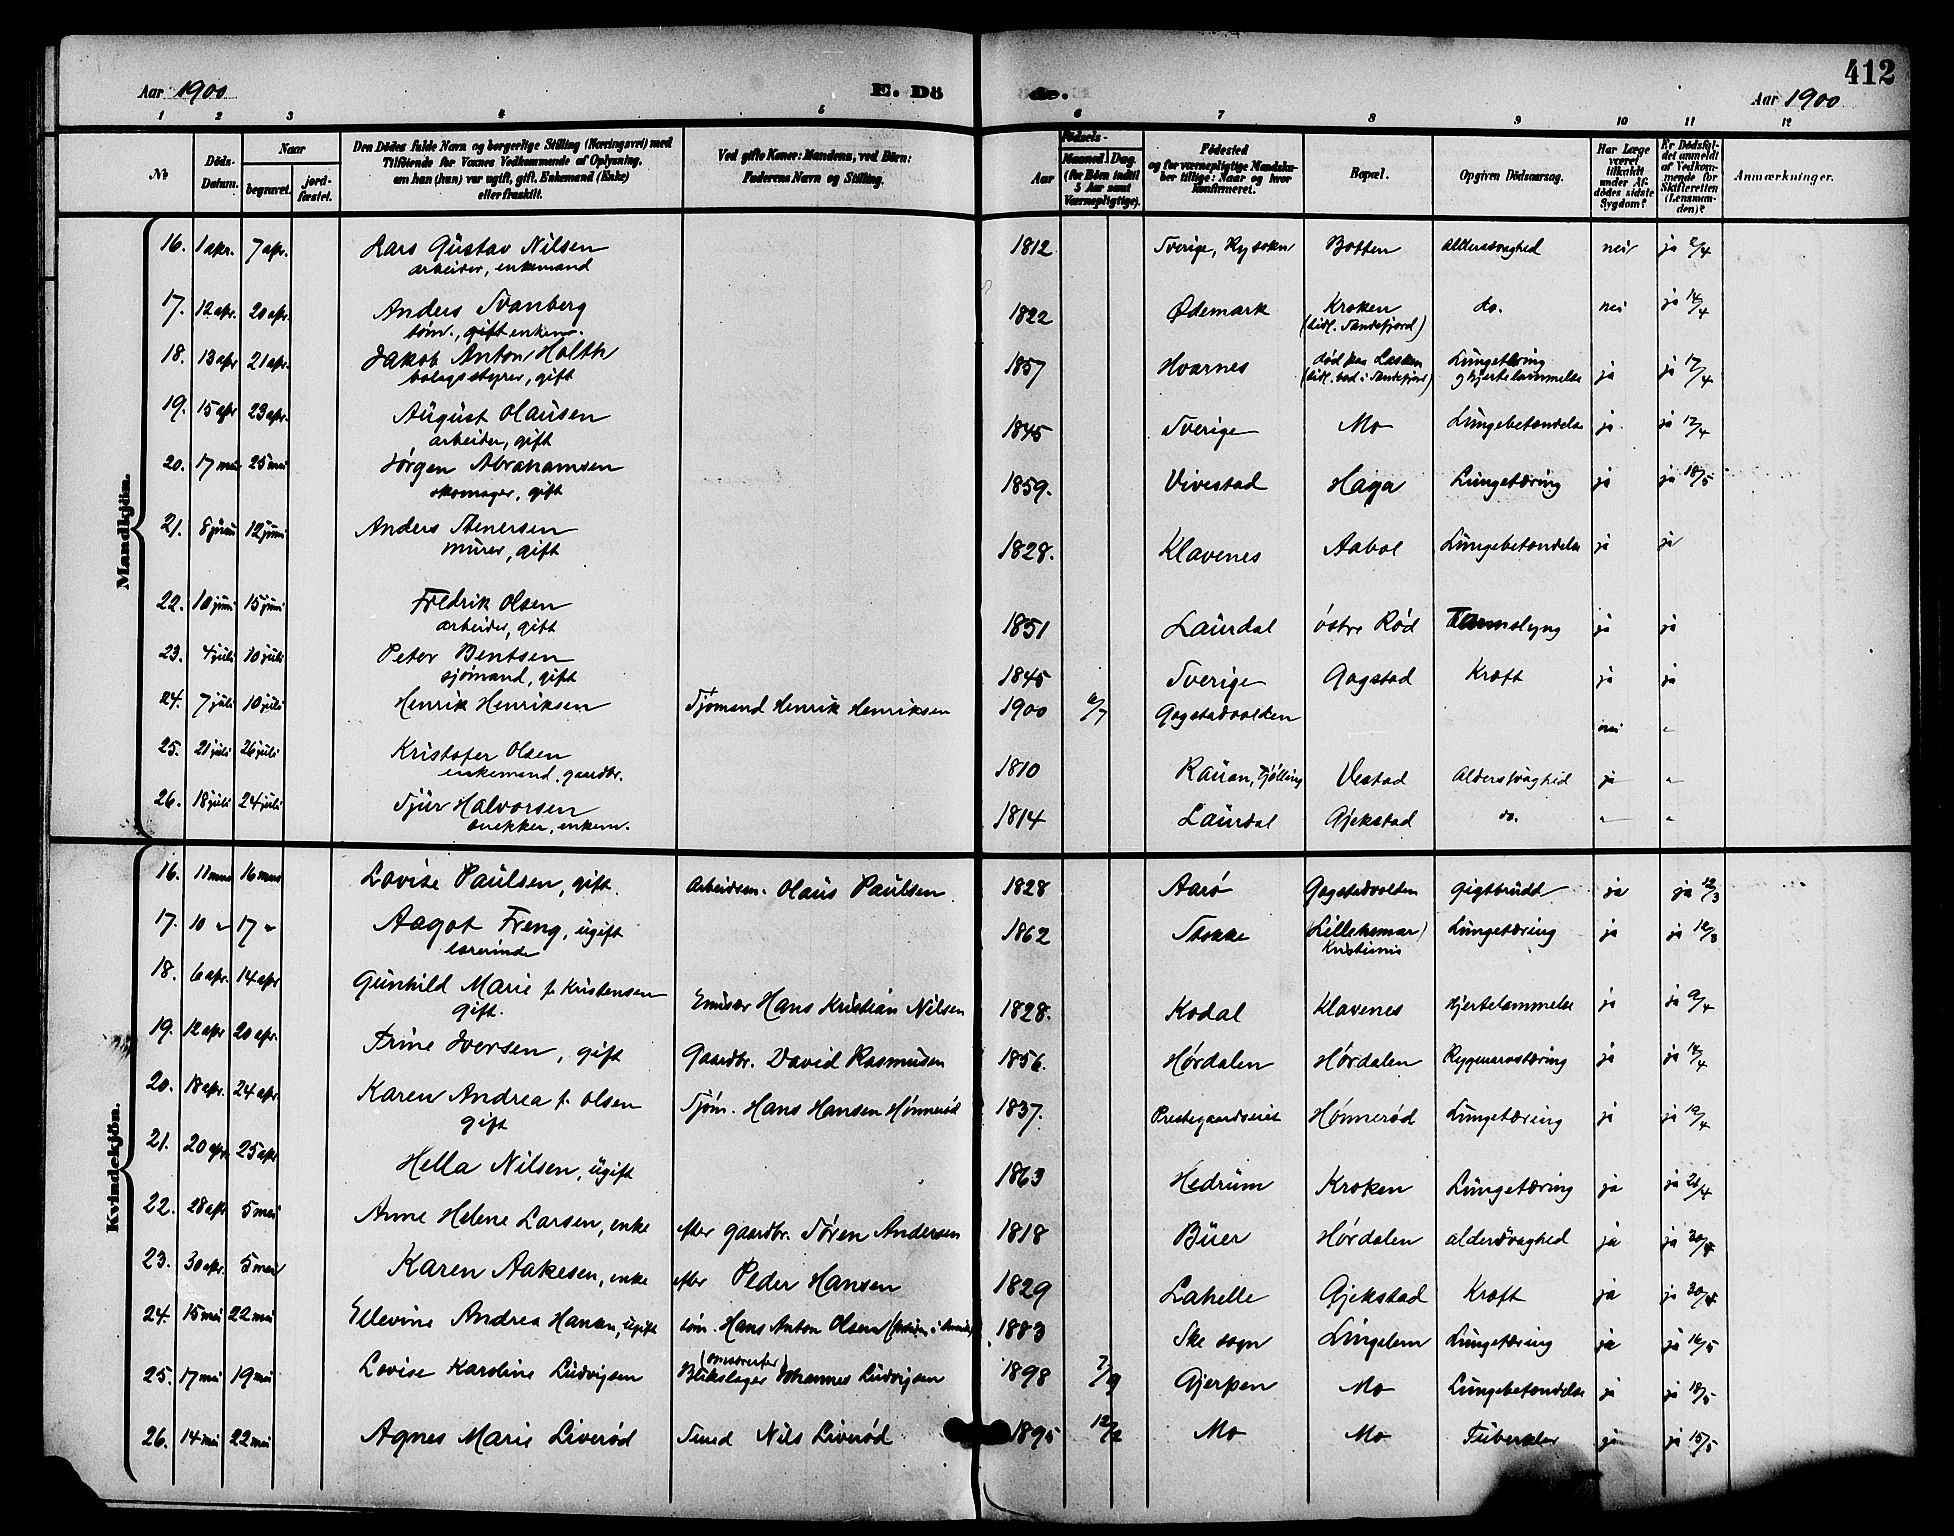 Aar 1900 E. Dö de. 412
Aar 1900
1 2 3 4 5 6 7 8 9 10 11 12
No.
Döds-Datum.
Naar
begravet.
jordfæstet.
Den Dödes fulde Navn og borgerlige Stilling (Næringsvei) med
Tilföiende for Voxnes Vedkommende af Oplysning,
om han (hun) var ugift, gift, Enkemand (Enke)
eller fraskilt.
Ved gifte Koner: Mandens, ved Börn:
Faderens Navn og Stilling.
Födsels-
Aar
Maaned Dag.
(for Börn indtil
5 Aar samt
Værnepligtige).
Födested
og for værnepligtige Mandskaber tillige: Naar og hvor
konfirmeret.
Bopæl.
Opgiven Dödsaarsag.
Har Læge
været
tilkaldt
under Afdödes sidste
Sygdom?
Er Dödsfaldet anmeldt
af Vedkommende for
Skifteretten
(Lensmanden)?
Anmærkninger.
Mandkjön.
16. 1 apr. 7 apr. Lars Gustav Nilsen 1812 Sverige, Botten Alderssvaghed nei ja 2/4
arbeider, enkemand
17. 12 apr. 20 apr. Anders Svanberg 1822 Ødemark Kroken do. nei ja 14/4
tøm., gift enkem. (tidl. Sandefjord)
18. 13 apr 21 apr. Jakob Anton Holth 1857 Hvarnes død paa Lungetæring ja ja 17/4
bolagsstyrer, gift (tidl. bod. i Sandefjord) og Hjertelammelse
19. 15 apr 23 apr. August Olausen 1845 Sverige Mo Lungebetændelse ja ja 17/4
arbeider, gift
20. 17 mai 25 mai Jørgen Abrahamsen 1859. Vivestad Haga Lungetæring ja ja 18/5
skomager, gift
21. 8 juni 12 juni Anders Stenersen 1828. Klavenes Aabol Lungebetændelse ja ja
murer, gift
22. 10 juni 15 juni Fredrik Olsen 1851 Laurdal østre Rød Tarmslyng ja ja
arbeider, gift
23. 4 juli 10 juli Peter Bentsen 1845 Sverige Gogstad Kræft ja ja
sjømand, gift
24. 7 juli 10 juli Henrik Henriksen Sjømand Henrik Henriksen 1900 6/7 Gogstadvolden nei "
25. 21 juli 26 juli Kristofer Olsen 1810 Rauan, Tjølling Vestad Alderssvaghed ja "
enkemand, gaardbr.
26. 18 juli 24 juli Sjur Halvorsen 1814 Laurdal Gjekstad do. " "
snekker, enkem.
Kvindekjön.
16. 11 mars 16 mars Lovise Paulsen, gift. Arbeidsm. Olaus Paulsen 1828 Aarø Gogstadvolden gigtbrudd ja ja 12/3
17. 10 " 17 " Aagot Freng, ugift 1862 Stokke (Lillehamar) Lungetæring ja ja 12/3
lærerinde Kristiania
18. 6 apr. 14 apr Gunhild Marie f. Kristensen Emissær Hans Kristian Nilsen 1828. Kodal Klavenes Hjertelammelse ja ja 9/4
gift.
19. 12 apr 20 apr. Trine Iversen, gift Gaardbr. David Rasmussen 1856. Hørdalen Hørdalen Rygmarvstæring ja ja 14/4
20. 18 apr. 24 apr. Karen Andrea f. Olsen Sjøm. Hans Hansen Hønnerød 1837. Prestegaardseiet Hønnerød Lungetæring ja ja 19/4
gift
21. 20 apr. 25 apr Hella Nilsen, ugift 1863 Hedrum Kroken Lungetæring ja ja 21/4
22. 28 apr 5 mai Anne Helene Larsen, enke efter gaardbr. Søren Andersen 1818 Buer Hørdalen alderdsvaghed ja ja 30/4
23. 30 apr. 5 mai Karen Aakesen, enke efter Peder Hansen 1829 Lahelle Gjekstad Kræft ja ja 30/4
24. 15 mai 22 mai Ellevine Andrea Hansen, ugift tøm. Hans Anton Olsen 1883 Ske sogn Lingelem Lungetæring ja ja 16/5
25. 17 mai 19 mai Lovise Karoline Ludvigsen Blikslager Johannes Ludvigsen 1898 7/9 Gjerpen Mo Lungebetændelse ja ja 18/5
26. 14 mai 22 mai Agnes Marie Liverød Smed Nils Liverød 1895 12/2 Mo Mo Tuberkler ja ja 15/5